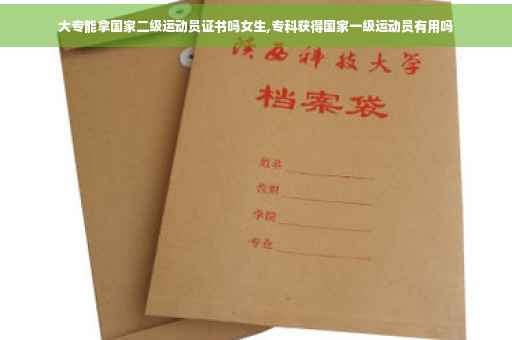 大专能拿国家二级运动员证书吗女生,专科获得国家一级运动员有用吗
陕西科技大学
档案袋
姓名
学院
专业